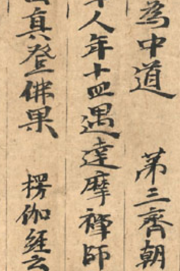 為中道　第三齊朝
人年十四遇達摩禪師
真登佛果　楞伽經云